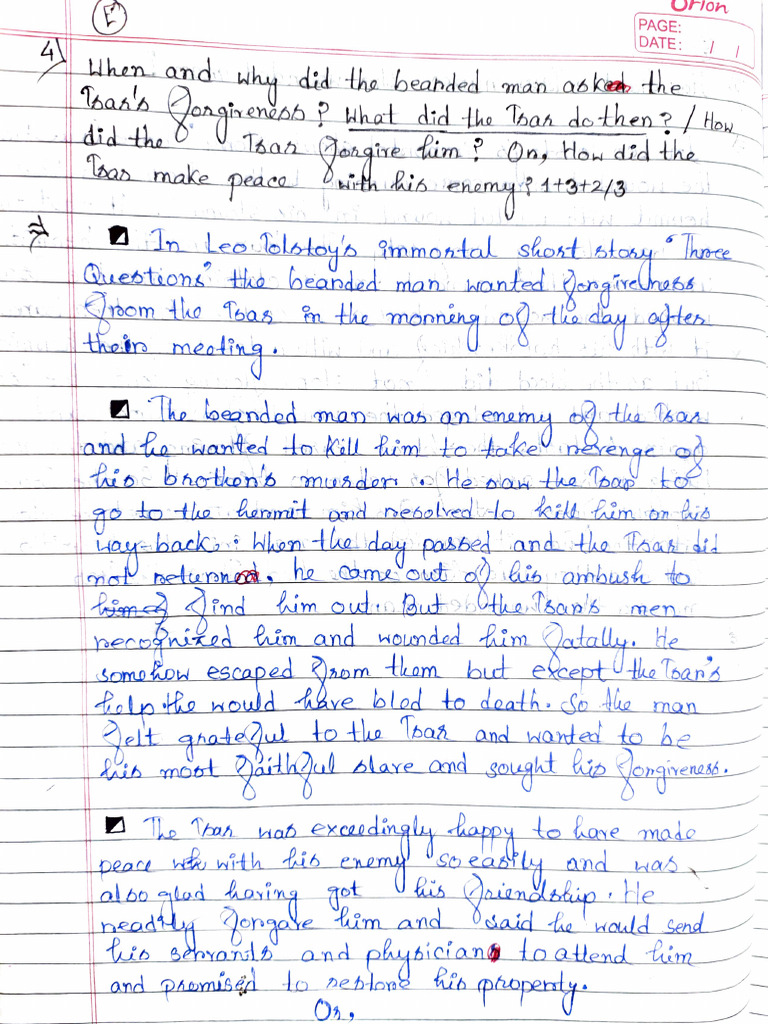 Orion
E
PAGE:
DATE: / /
4) When and why did the bearded man asked the
Tsar's forgiveness? What did the Tsar do then? / How
did the Tsar forgive him? Or, How did the
Tsar make peace with his enemy? 1+3+2/3
⇒ In Leo Tolstoy's immortal short story "Three
Questions" the bearded man wanted forgiveness
from the Tsar in the morning of the day after
their meeting.
The bearded man was an enemy of the Tsar
and he wanted to kill him to take revenge of
his brother's murder. He saw the Tsar to
go to the hermit and resolved to kill him on his
way-back. When the day passed and the Tsar did
not return, he came out of his ambush to
find him out. But the Tsar's men
recognized him and wounded him fatally. He
somehow escaped from them but except the Tsar's
help he would have bled to death. So the man
felt grateful to the Tsar and wanted to be
his most faithful slave and sought his forgiveness.
The Tsar was exceedingly happy to have made
peace with his enemy so easily and was
also glad having got his friendship. He
readily forgave him and said he would send
his servants and physician to attend him
and promised to restore his property.
Or,